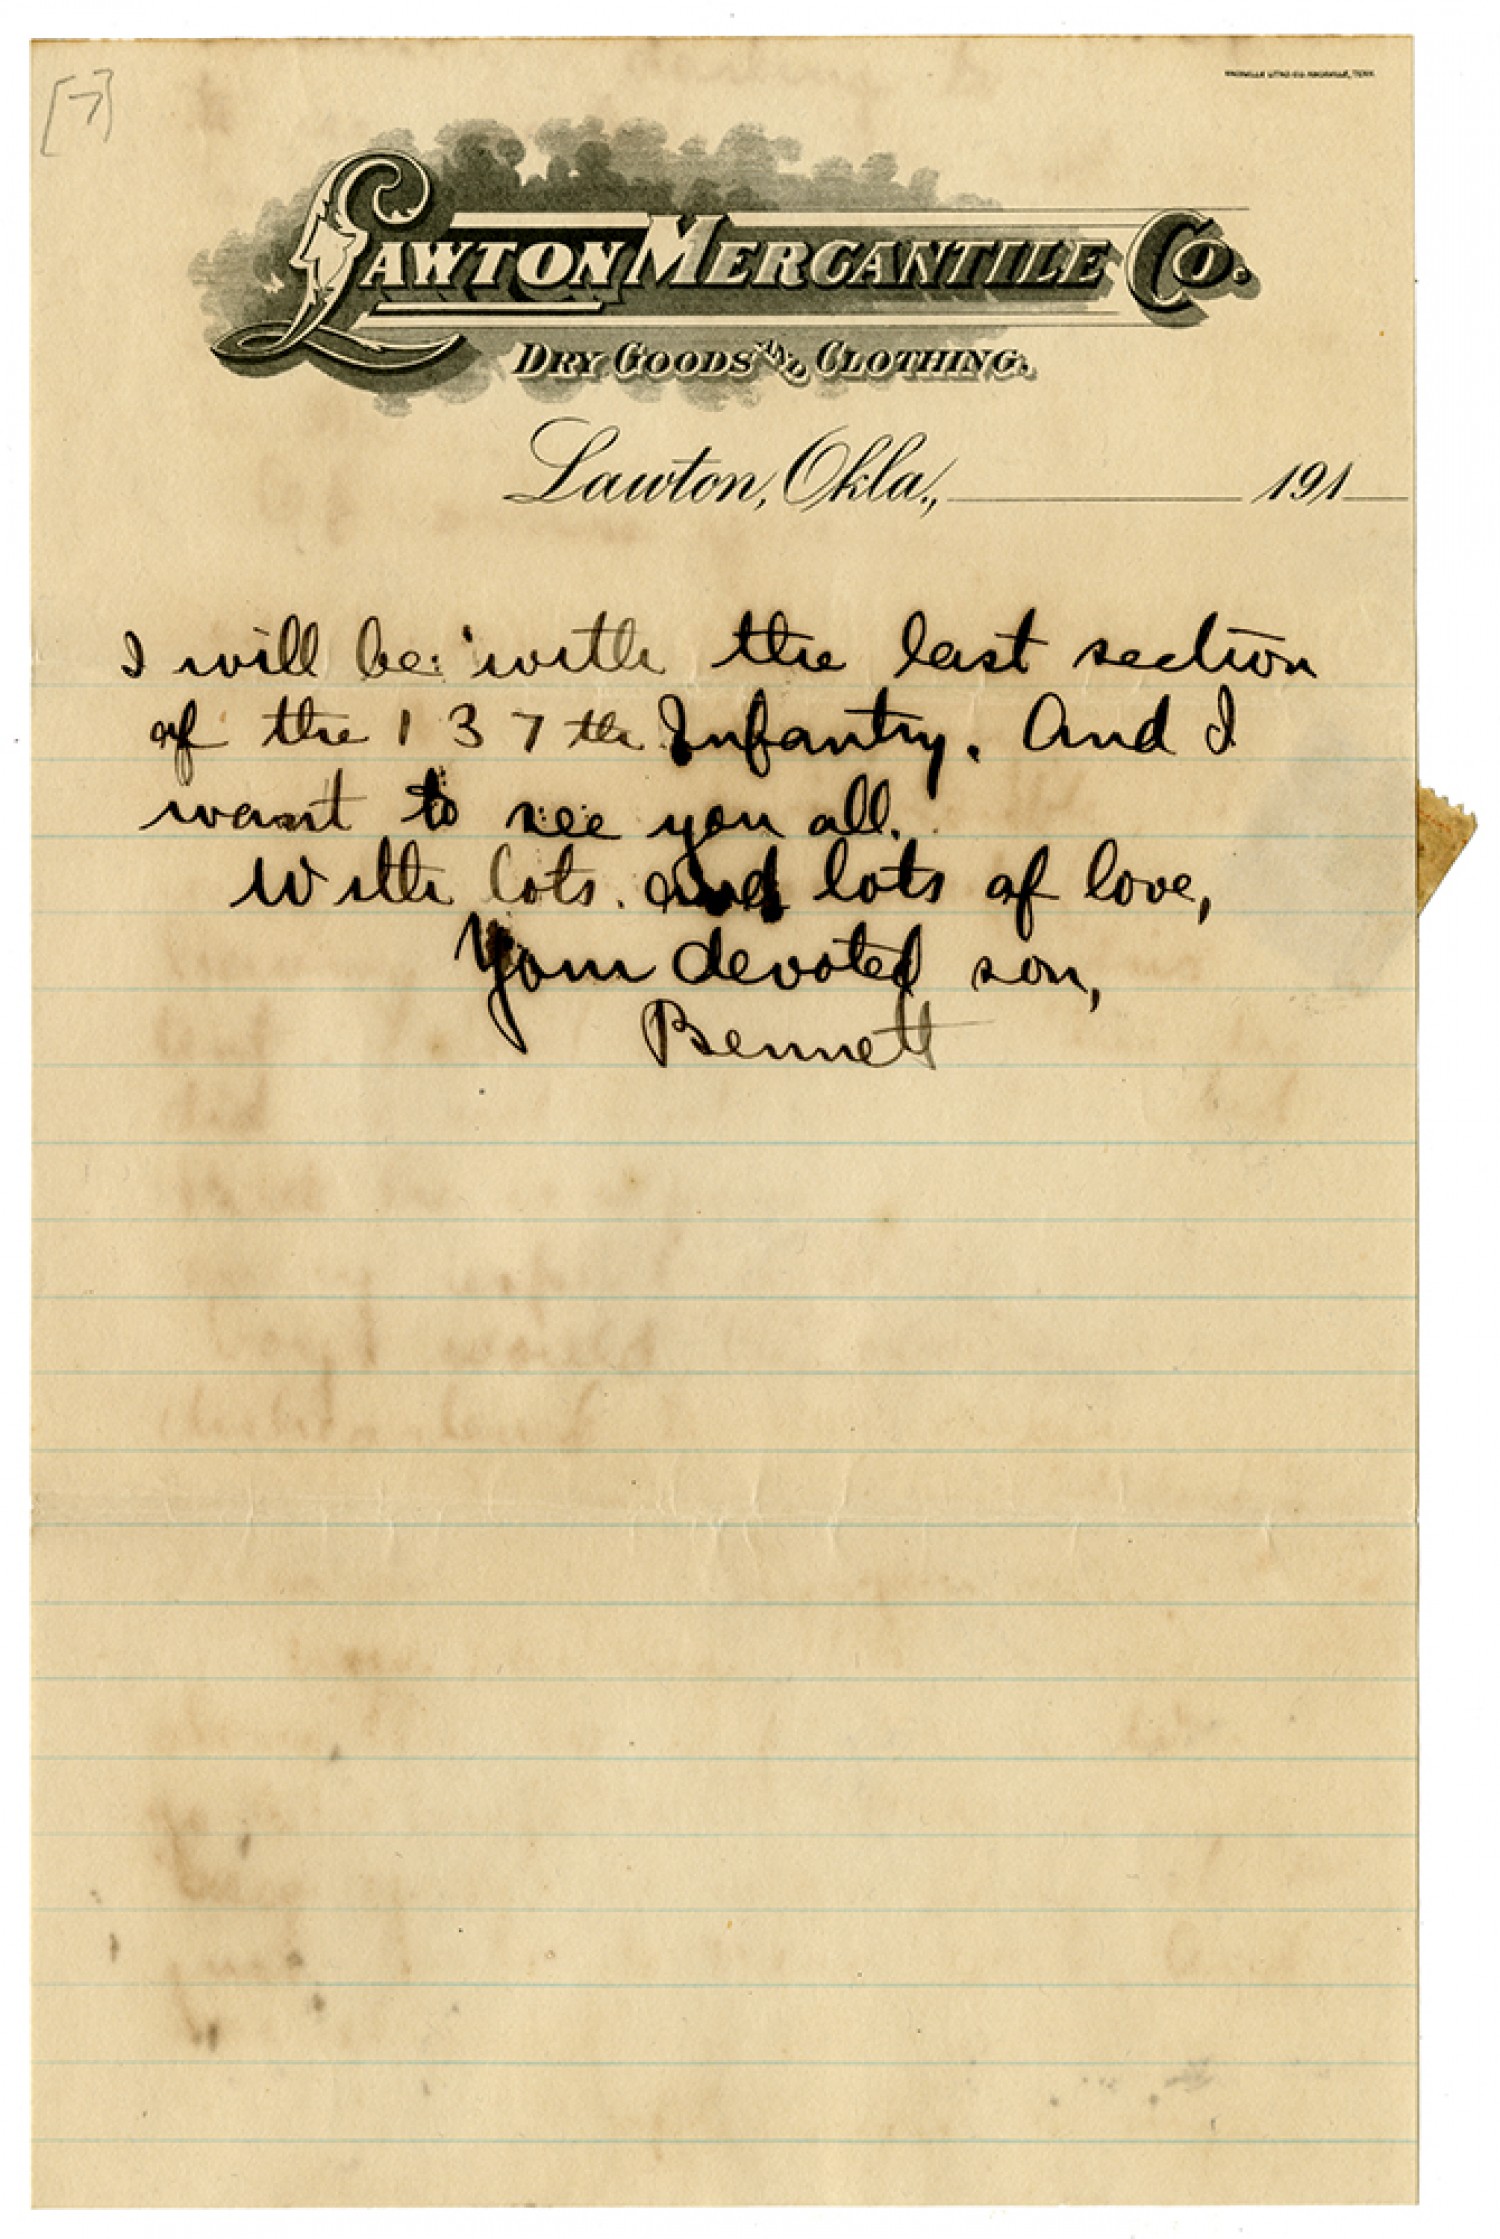 [7]
LAWTON MERCANTILE CO.
DRY GOODS AND CLOTHING.
Lawton, Okla., 191
I will be with the last section
of the 137th Infantry. And I
want to see you all.
With lots and lots of love,
Your devoted son,
Bennett